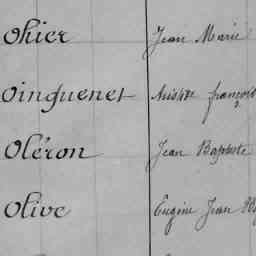 Ohier Jean Marie
Oinguenet françois
Oléron Jean Baptiste
Olive Eugène Jean